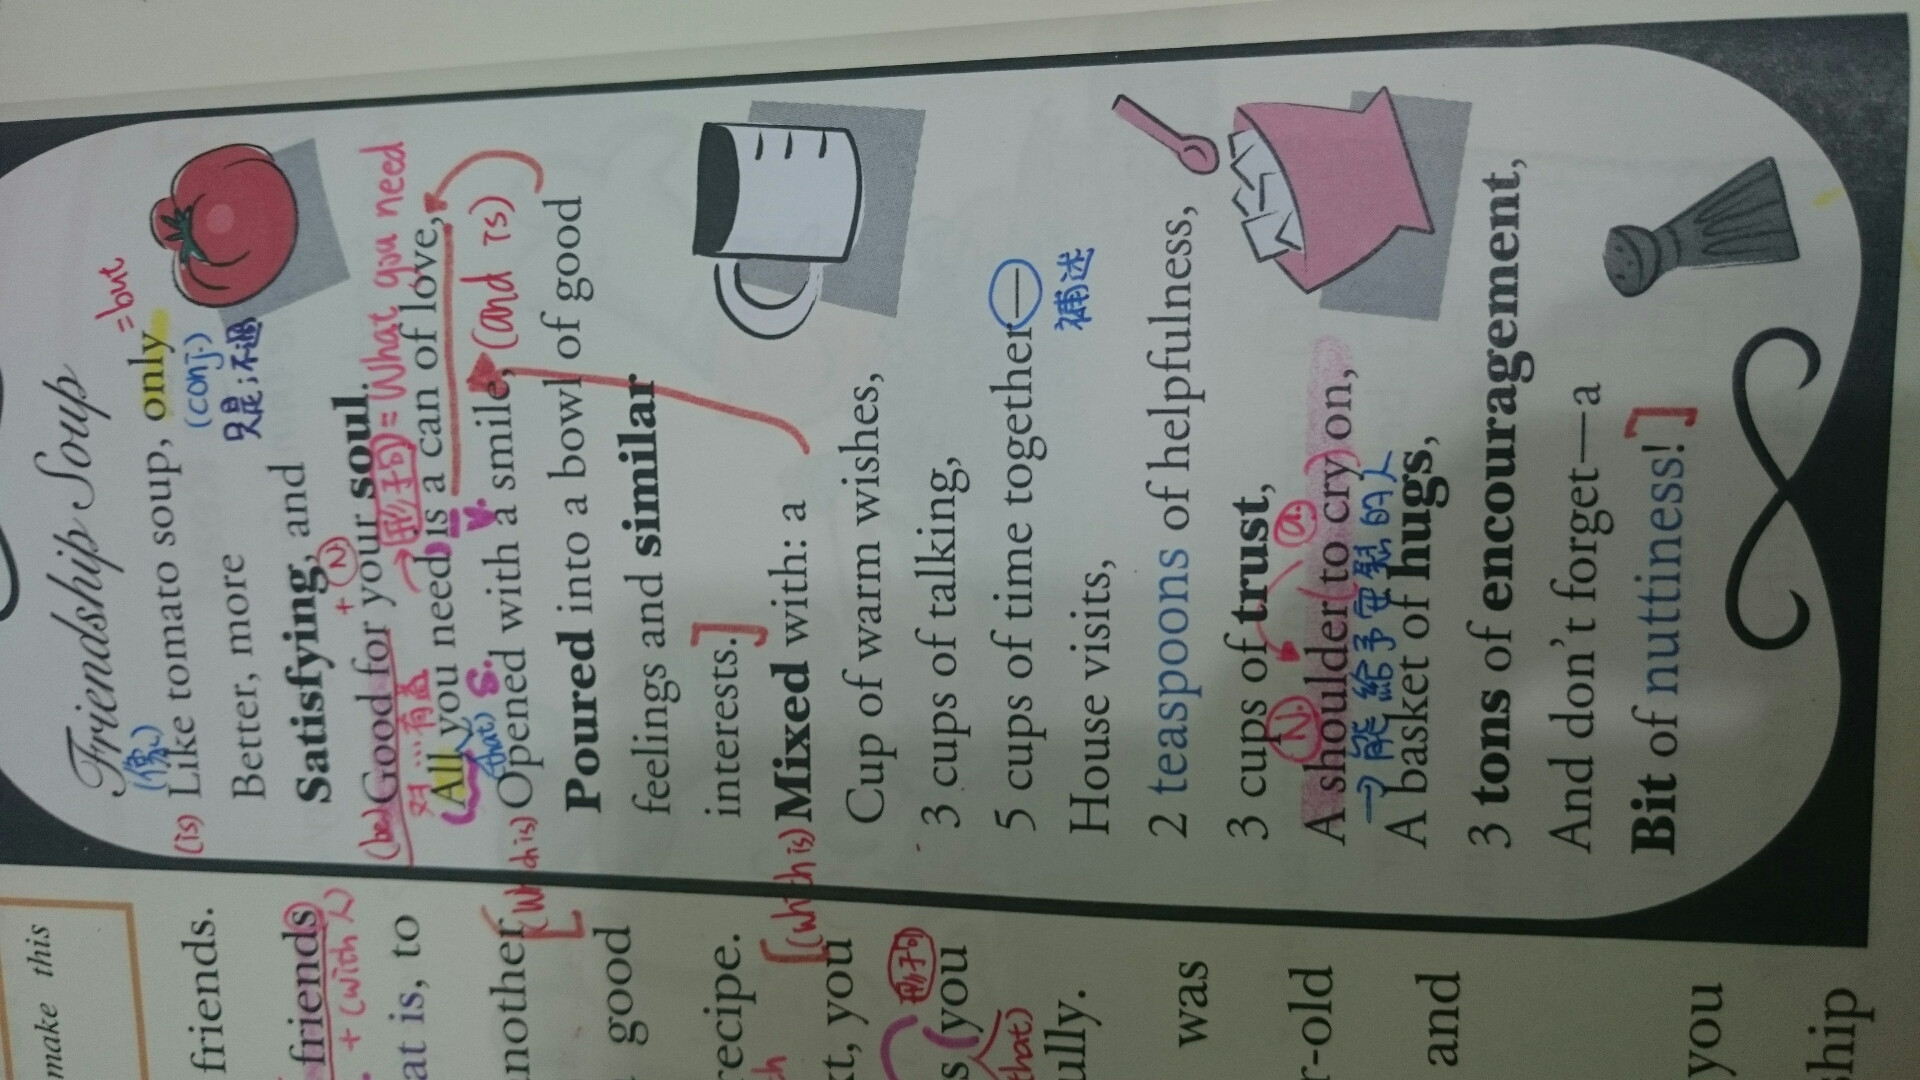 Friendship Soup
=but
(像)
(is) Like tomato soup, only
(conj.)
只是;不過
Better, more
Satisfying, and
+ N
(be) Good for your soul.
対…有益
形子句 = What you need
(All you need is a can of love,
(that) S. V.
(which is) Opened with a smile, (and is)
Poured into a bowl of good
feelings and similar
interests.]
[(which is) Mixed with: a
Cup of warm wishes,
3 cups of talking,
5 cups of time together—
補述
House visits,
2 teaspoons of helpfulness,
3 cups of trust,
N. a.
A shoulder (to cry) on,
→能給予安慰的人
A basket of hugs,
3 tons of encouragement,
And don't forget—a
Bit of nuttiness!]
make this
friends.
friends
+ (with 人)
at is, to
nother
good
recipe.
xt, you
形子句
s (you
(that)
ully.
was
r-old
and
you
ship